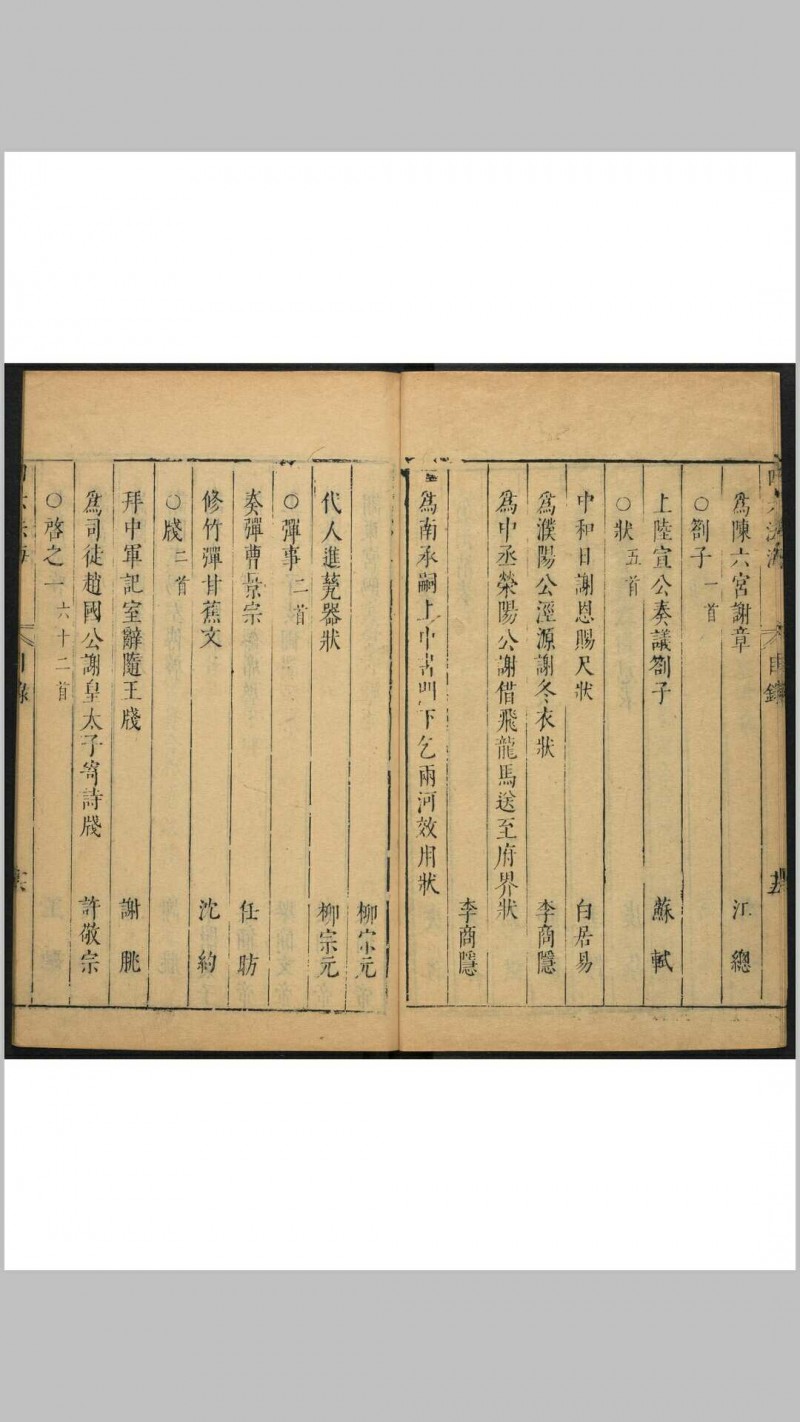 爲陳六宮謝章　江總
○劄子一首
上陸宣公奏議劄子　蘇軾
○狀五首
中和日謝恩賜尺狀　白居易
爲濮陽公涇源謝冬衣狀　李商隱
爲中丞滎陽公謝借飛龍馬送至府界狀
李商隱
爲南承嗣上中書門下乞兩河效用狀
柳宗元
代人進甆器狀　柳宗元
○彈事二首
奏彈曹景宗　任昉
修竹彈甘蕉文　沈約
○牋二首
拜中軍記室辭隨王牋　謝朓
爲司徒趙國公謝皇太子寄詩牋　許敬宗
○啓之一六十二首
目錄